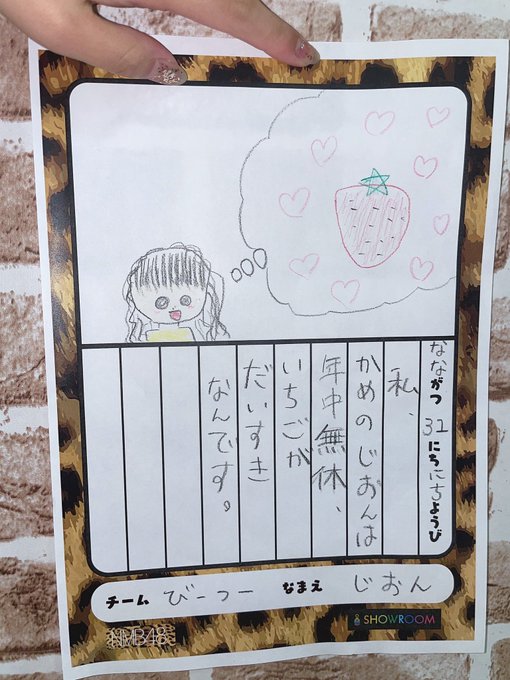 なながつ 31 にちにちようび
私、
かめのじおんは
年中無休、
いちごが
だいすき
なんです。
チーム びーつー なまえ じおん
NMB48
SHOWROOM